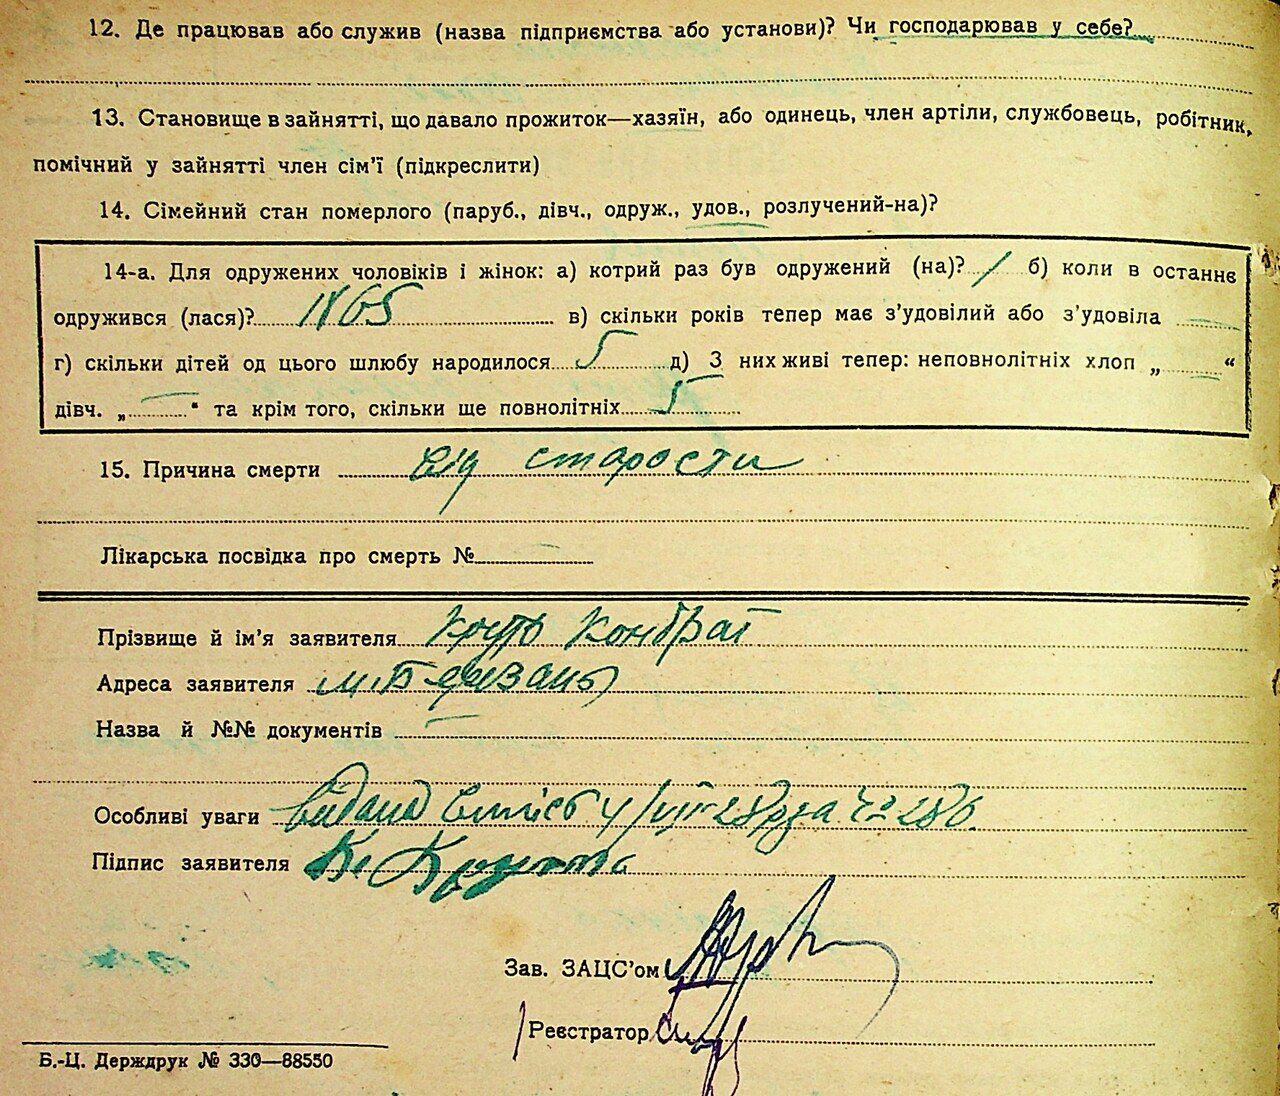 12. Де працював або служив (назва підприємства або установи)? Чи господарював у себе?
13. Становище в зайнятті, що давало прожиток—хазяїн, або одинець, член артіли, службовець, робітник,
помічний у зайнятті член сім'ї (підкреслити)
14. Сімейний стан померлого (паруб., дівч., одруж., удов., розлучений-на)?
14-а. Для одружених чоловіків і жінок: а) котрий раз був одружений (на)? / б) коли в останнє
одружився (лася)? 1865 в) скільки років тепер має з'удовілий або з'удовіла —
г) скільки дітей од цього шлюбу народилося 5 д) З них живі тепер: неповнолітніх хлоп „ — “
дівч. „ — “ та крім того, скільки ще повнолітніх 5
15. Причина смерти від старости
Лікарська посвідка про смерть № —
Прізвище й ім'я заявителя Кондрат
Адреса заявителя м. Березань
Назва й №№ документів —
Особливі уваги видана
Підпис заявителя К.
Зав. ЗАЦС'ом
Реєстратор
Б.-Ц. Держдрук № 330—88550